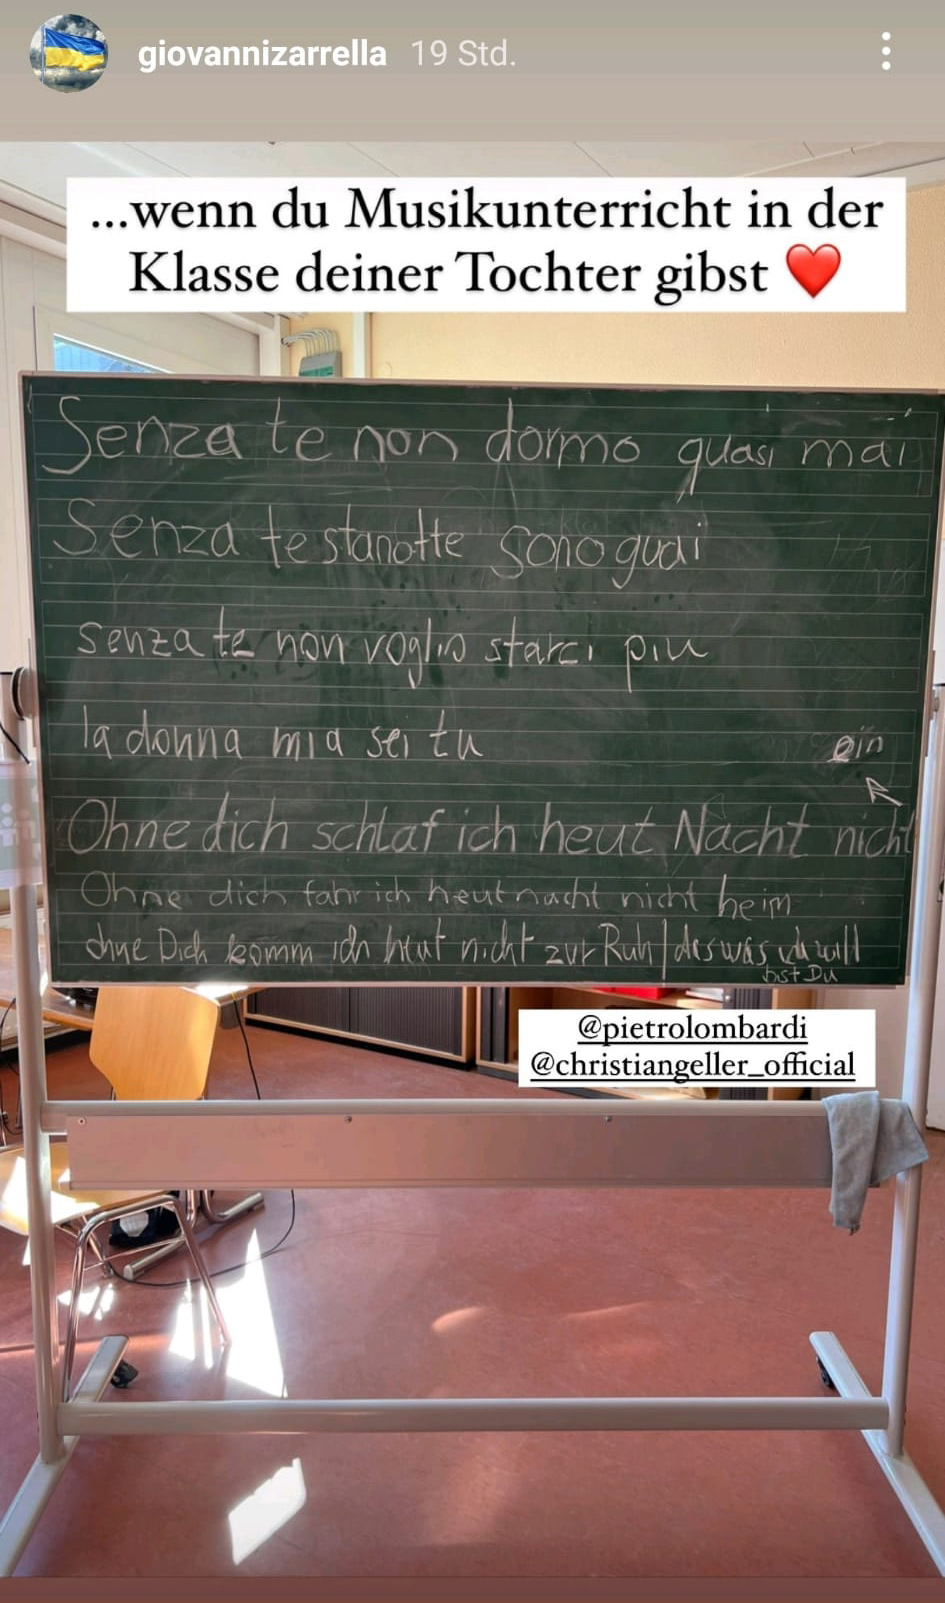 giovannizarrella 19 Std.
...wenn du Musikunterricht in der
Klasse deiner Tochter gibst ❤️
Senza te non dormo quasi mai
Senza te stanotte sono guai
senza te non voglio starci piu
la donna mia sei tu
ein
Ohne dich schlaf ich heut Nacht nicht
Ohne dich fahr ich heut nacht nicht heim
ohne Dich komm ich heut nicht zur Ruh | das was ich will
bist Du
@pietrolombardi
@christiangeller_official